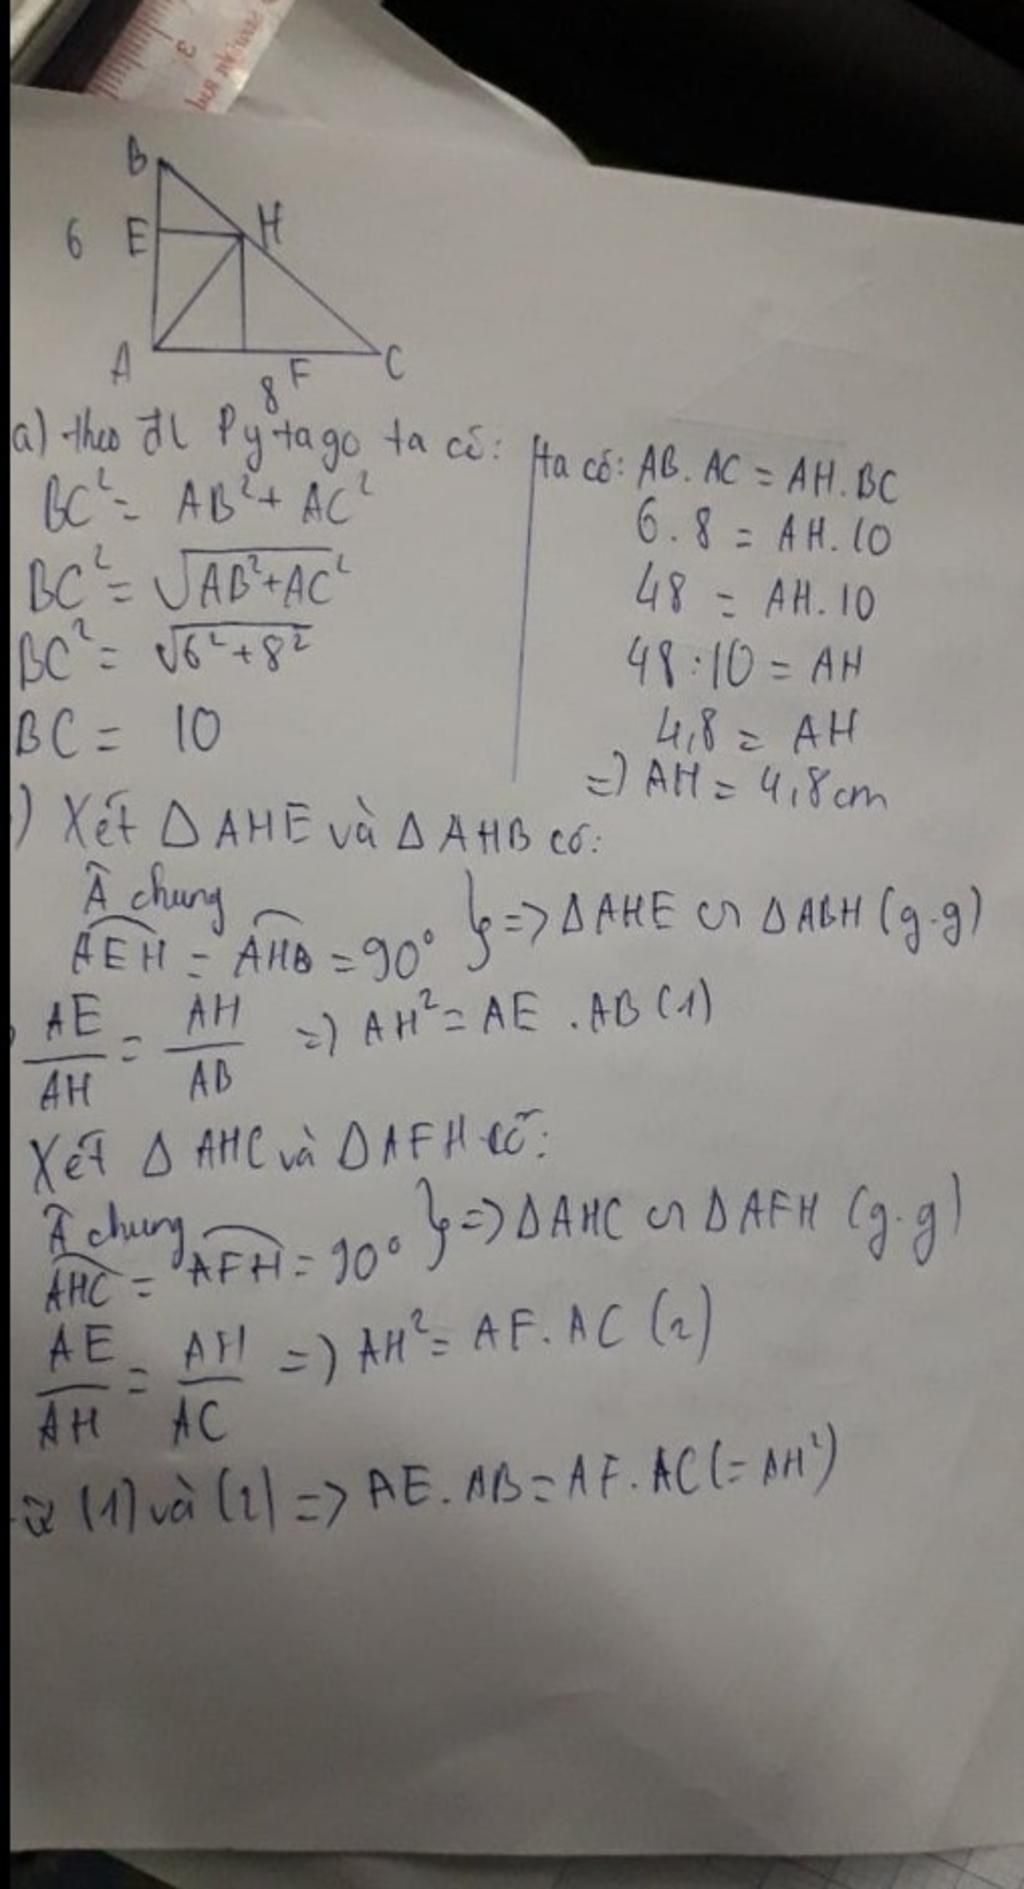 B
6 E H
A F C
8
a) theo đl Pytago ta có:
BC² = AB² + AC²
BC² = √AB²+AC²
BC² = √6²+8²
BC = 10
ta có: AB. AC = AH. BC
6. 8 = AH. 10
48 = AH. 10
48:10 = AH
4,8 = AH
=> AH = 4,8cm
) Xét Δ AHE và Δ AHB có:
Â chung
AEH = AHB = 90° } => ΔAHE ∽ ΔABH (g.g)
AE/AH = AH/AB => AH² = AE . AB (1)
Xét Δ AHC và Δ AFH có:
Â chung
AHC = AFH = 90° } => ΔAHC ∽ ΔAFH (g.g)
AE/AH = AH/AC => AH² = AF. AC (2)
(1) và (2) => AE. AB = AF. AC (= AH²)